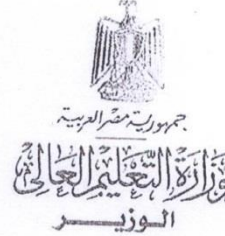 جمهورية مصر العربية
وزارة التعليم العالي
الوزيـــــر